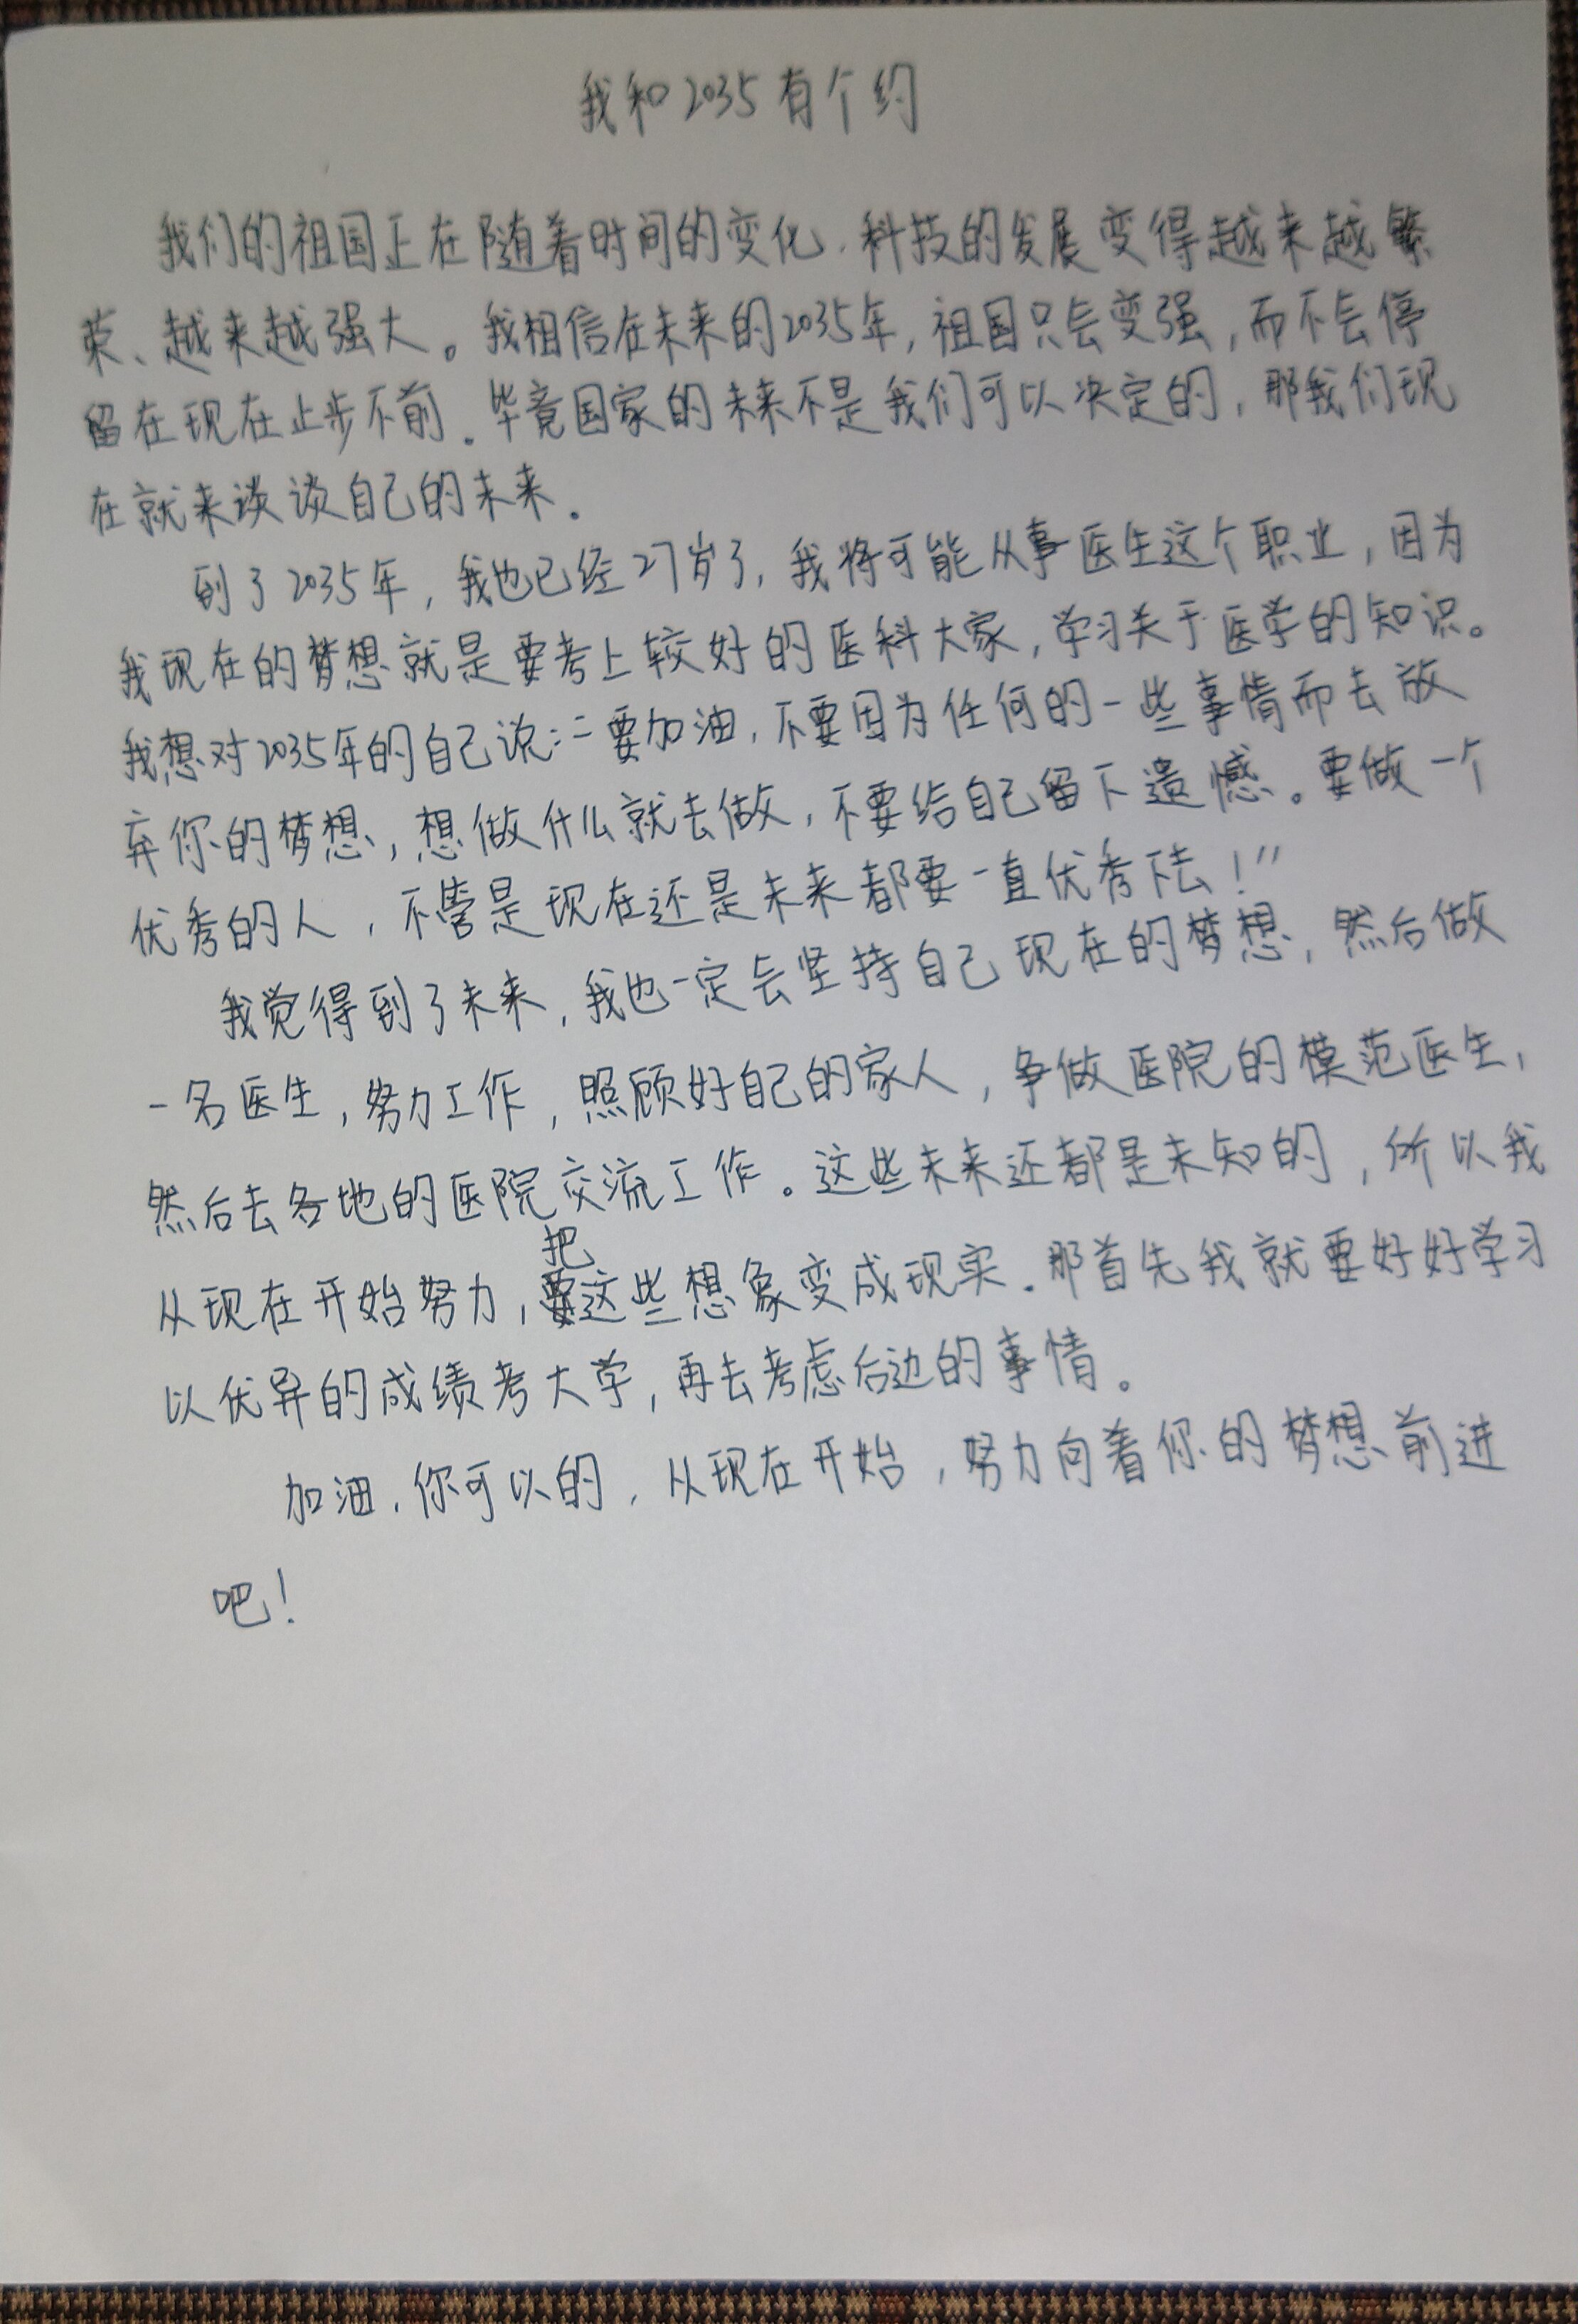 我和2035有个约
我们的祖国正在随着时间的变化,科技的发展变得越来越繁
荣、越来越强大。我相信在未来的2035年,祖国只会变强,而不会停
留在现在止步不前.毕竟国家的未来不是我们可以决定的,那我们现
在就来谈谈自己的未来.
到了2035年,我也已经27岁了,我将可能从事医生这个职业,因为
我现在的梦想就是要考上较好的医科大家,学习关于医学的知识。
我想对2035年的自己说:“要加油,不要因为任何的一些事情而去放
弃你的梦想,想做什么就去做,不要给自己留下遗憾。要做一个
优秀的人,不管是现在还是未来都要一直优秀下去!”
我觉得到了未来,我也一定会坚持自己现在的梦想,然后做
一名医生,努力工作,照顾好自己的家人,争做医院的模范医生,
然后去各地的医院交流工作。这些未来还都是未知的,所以我
从现在开始努力,把这些想象变成现实.那首先我就要好好学习
以优异的成绩考大学,再去考虑后边的事情。
加油,你可以的,从现在开始,努力向着你的梦想前进
吧!